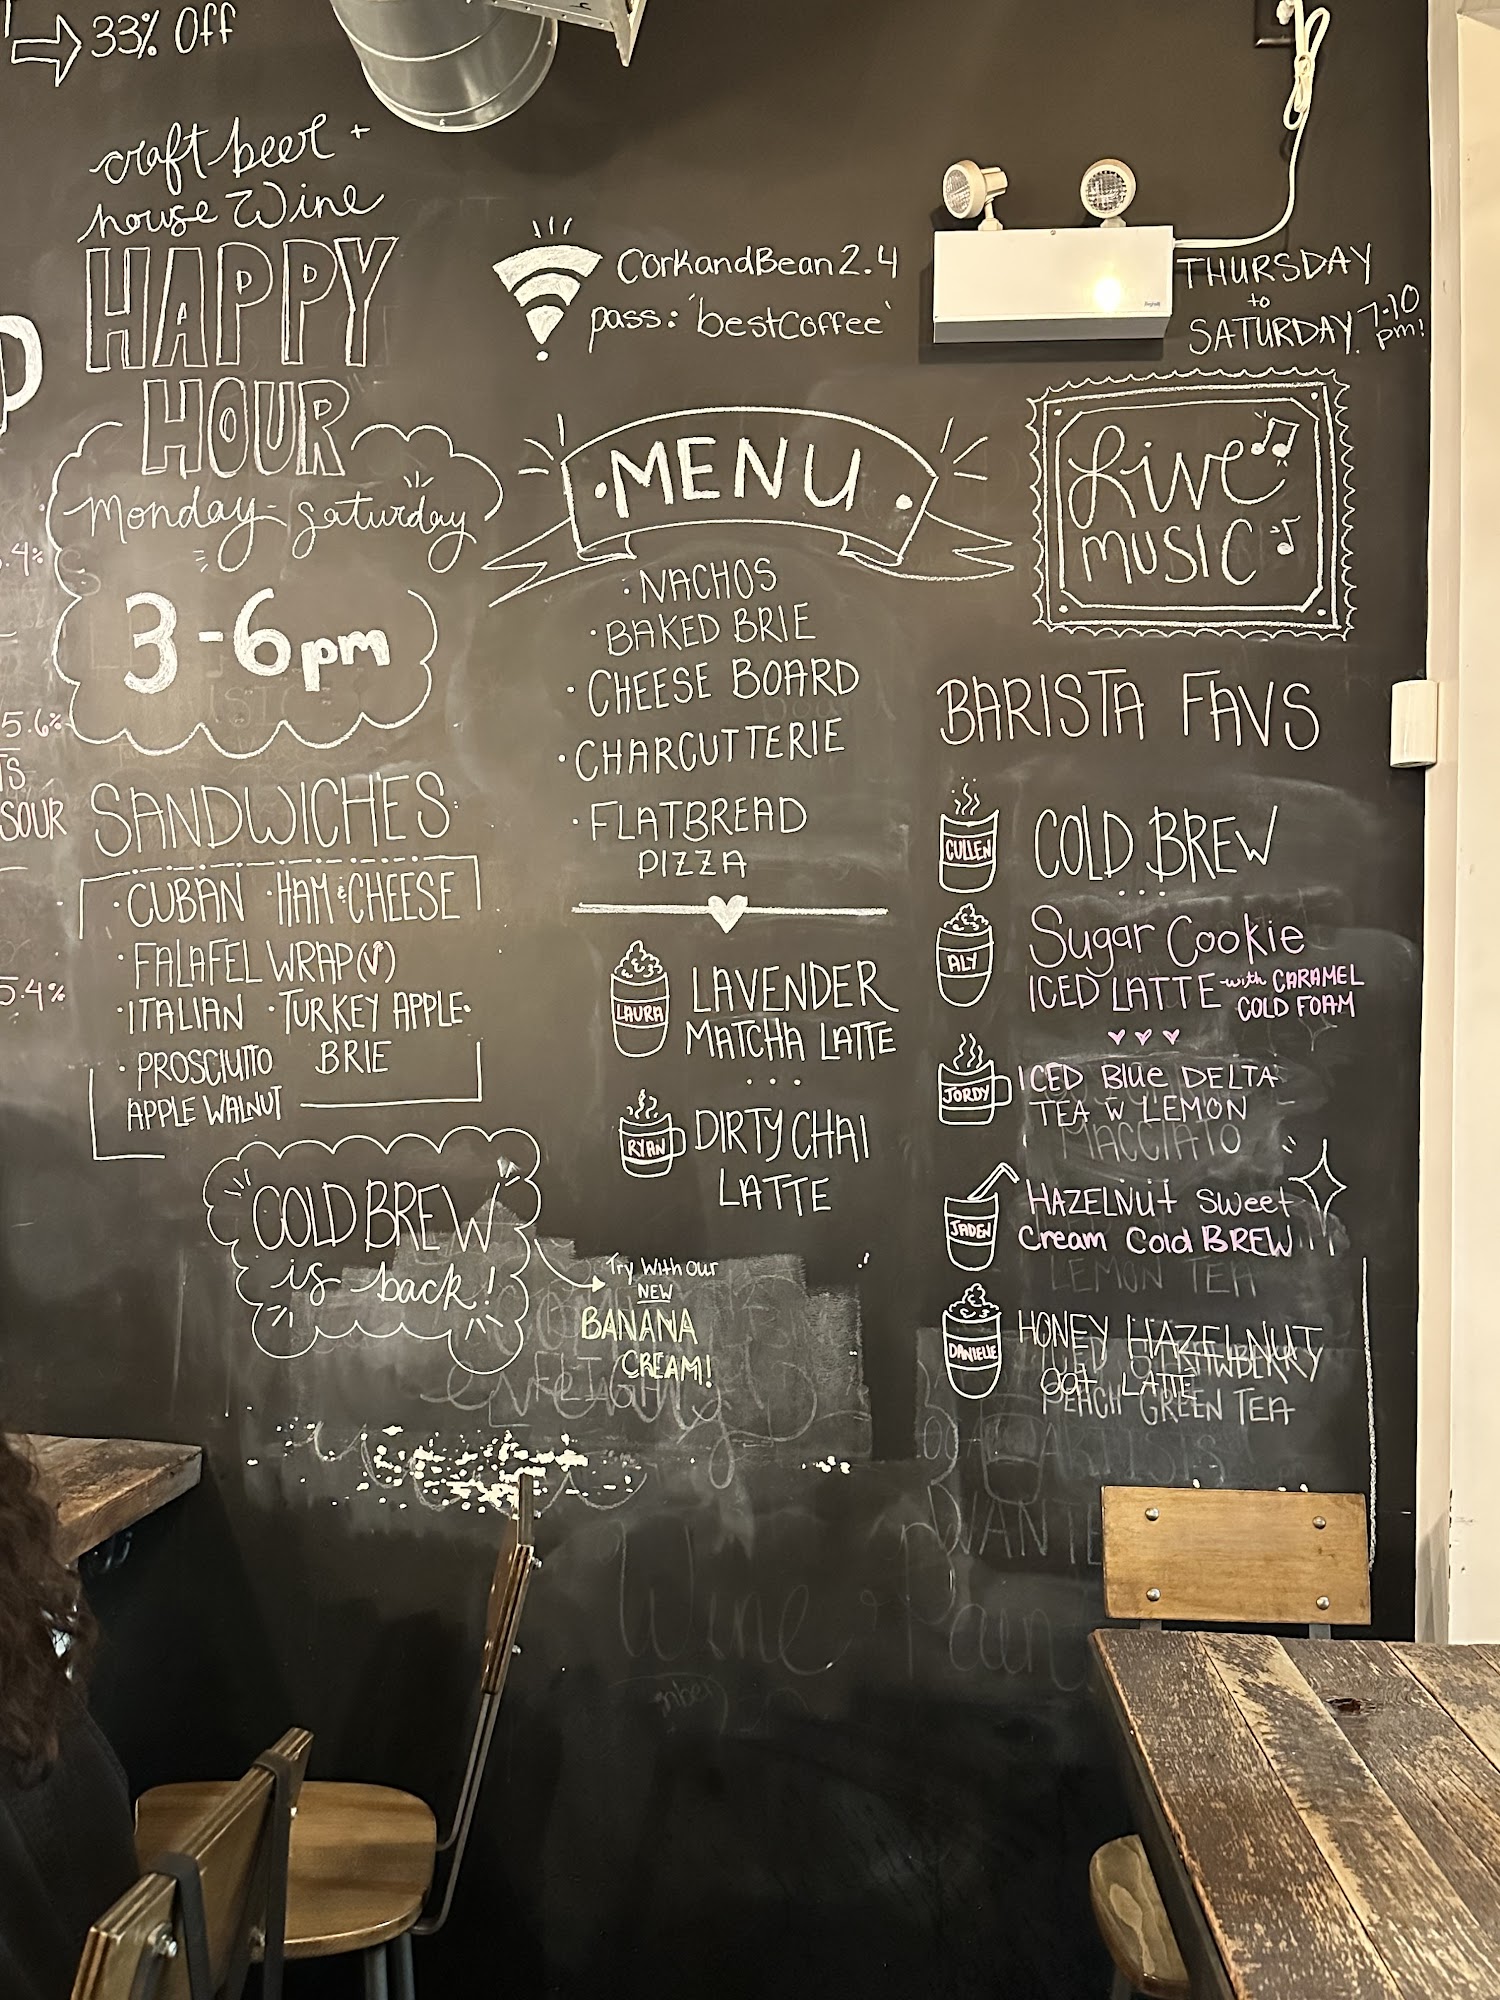 33% Off
craft beer +
house wine
HAPPY
HOUR
Monday - Saturday
3-6pm
5.6%
SOUR
5.4%
SANDWICHES
· CUBAN · HAM & CHEESE
· FALAFEL WRAP (V)
· ITALIAN · TURKEY APPLE
BRIE
· PROSCIUTTO
APPLE WALNUT
COLD BREW
is back!
Try With Our
NEW
BANANA
CREAM!
CorkandBean2.4
pass: 'bestcoffee'
MENU
· NACHOS
· BAKED BRIE
· CHEESE BOARD
· CHARCUTTERIE
· FLATBREAD
PIZZA
LAURA
LAVENDER
MATCHA LATTE
RYAN
DIRTY CHAI
LATTE
THURSDAY
to
SATURDAY. 7-10
pm!
Live
MUSIC
BARISTA FAVS
CULLEN
COLD BREW
ALY
Sugar Cookie
ICED LATTE with CARAMEL
COLD FOAM
JORDY
ICED Blue DELTA
TEA W LEMON
MACCIATO
JADEN
HAZELNUT Sweet
Cream Cold BREW
LEMON TEA
DANIELLE
HONEY HAZELNUT
oat LATTE
PEACH GREEN TEA
ARTISTS
Wine +